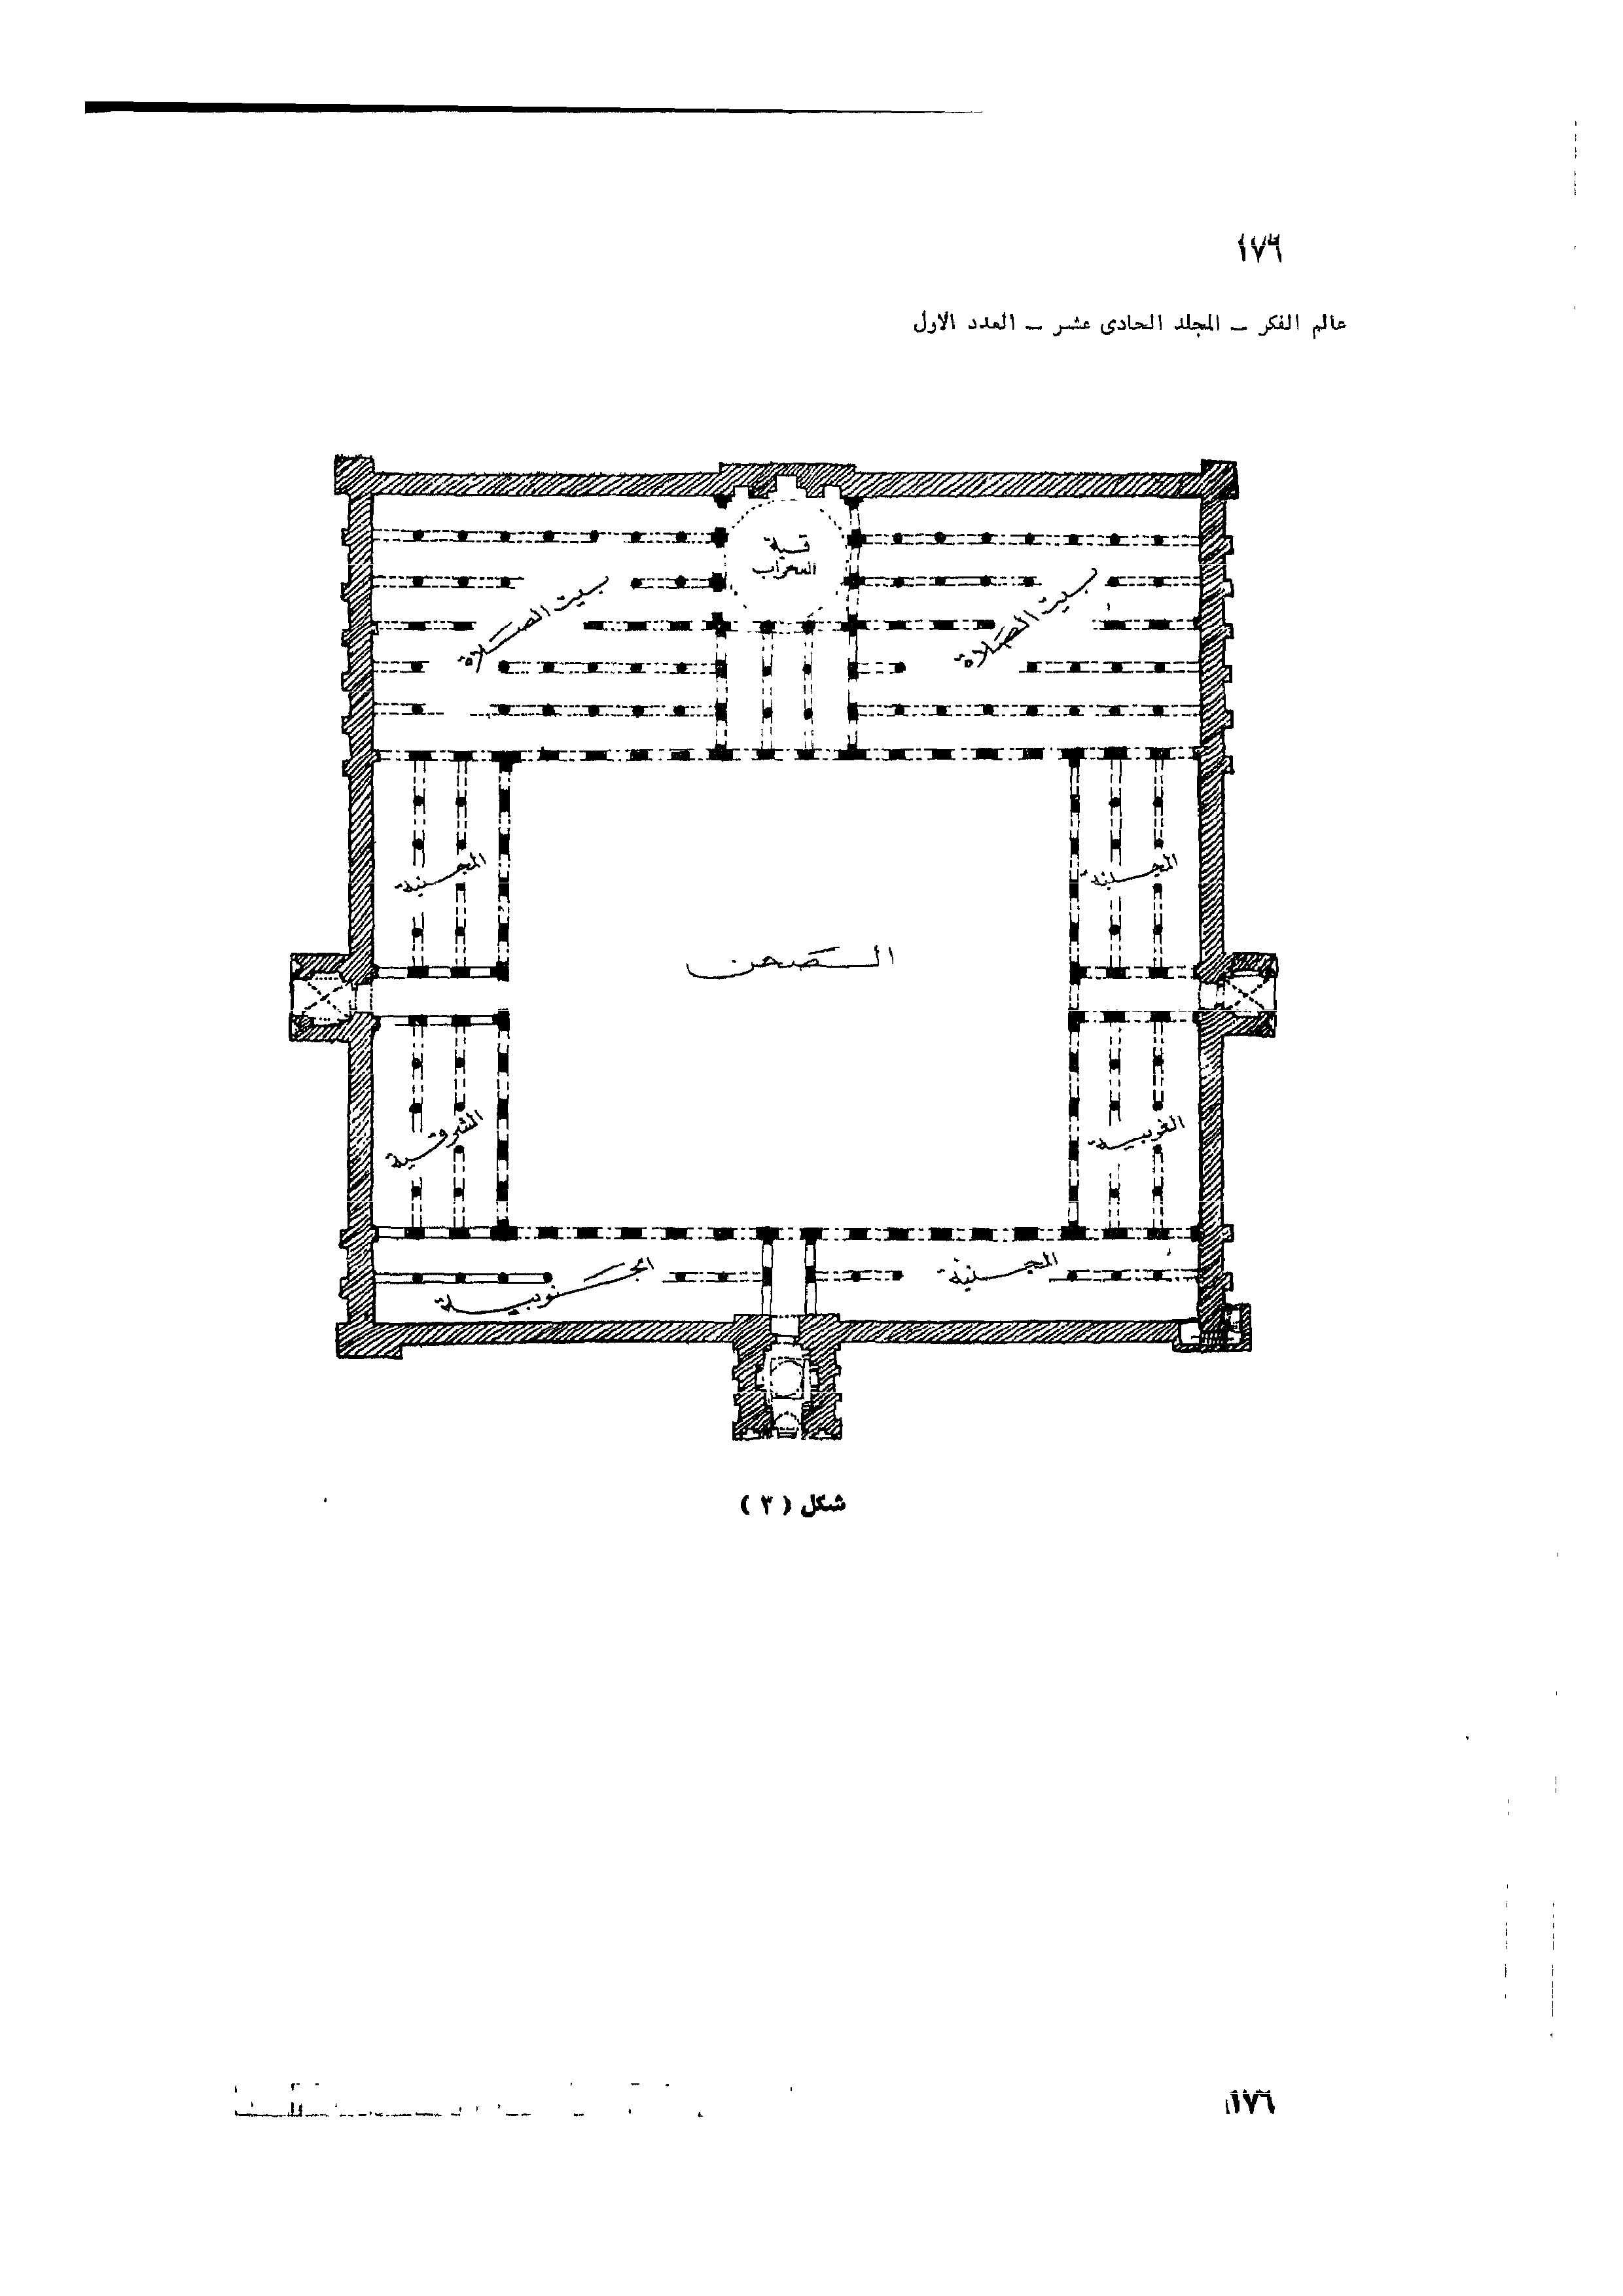 ١٧٦
عالم الفكر – المجلد الحادى عشر – العدد الاول
قبة
المحراب
بيت الصلاة
بيت الصلاة
المجنبة
المجنبة
الصحن
الغربية
الشرقية
المجنبة
الجنوبية
شكل ( ٣ )
١٧٦